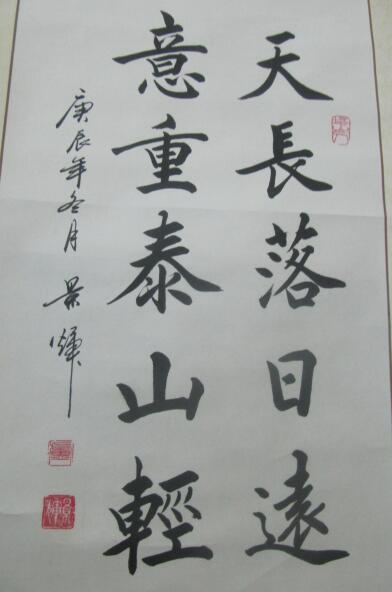 天長落日遠
意重泰山輕
庚辰年冬月 景輝